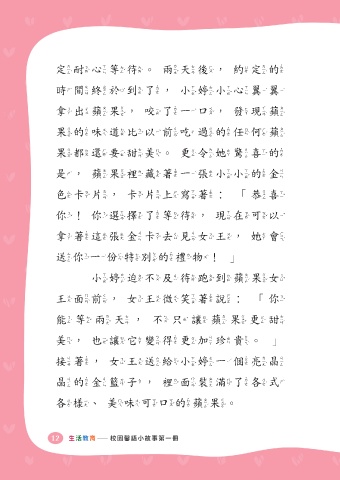 定耐心等待。兩天後，約定的
時間終於到了，小婷小心翼翼
拿出蘋果，咬了一口，發現蘋
果的味道比以前吃過的任何蘋
果都還要甜美。更令她驚喜的
是，蘋果裡藏著一張小小的金
色卡片，卡片上寫著：「恭喜
你！你選擇了等待，現在可以
拿著這張金卡去見女王，她會
送你一份特別的禮物！」
小婷迫不及待跑到蘋果女
王面前，女王微笑著說：「你
能等兩天，不只讓蘋果更甜
美，也讓它變得更加珍貴。」
接著，女王送給小婷一個亮晶
晶的金籃子，裡面裝滿了各式
各樣、美味可口的蘋果。
12 生活教育——校園馨語小故事第一冊